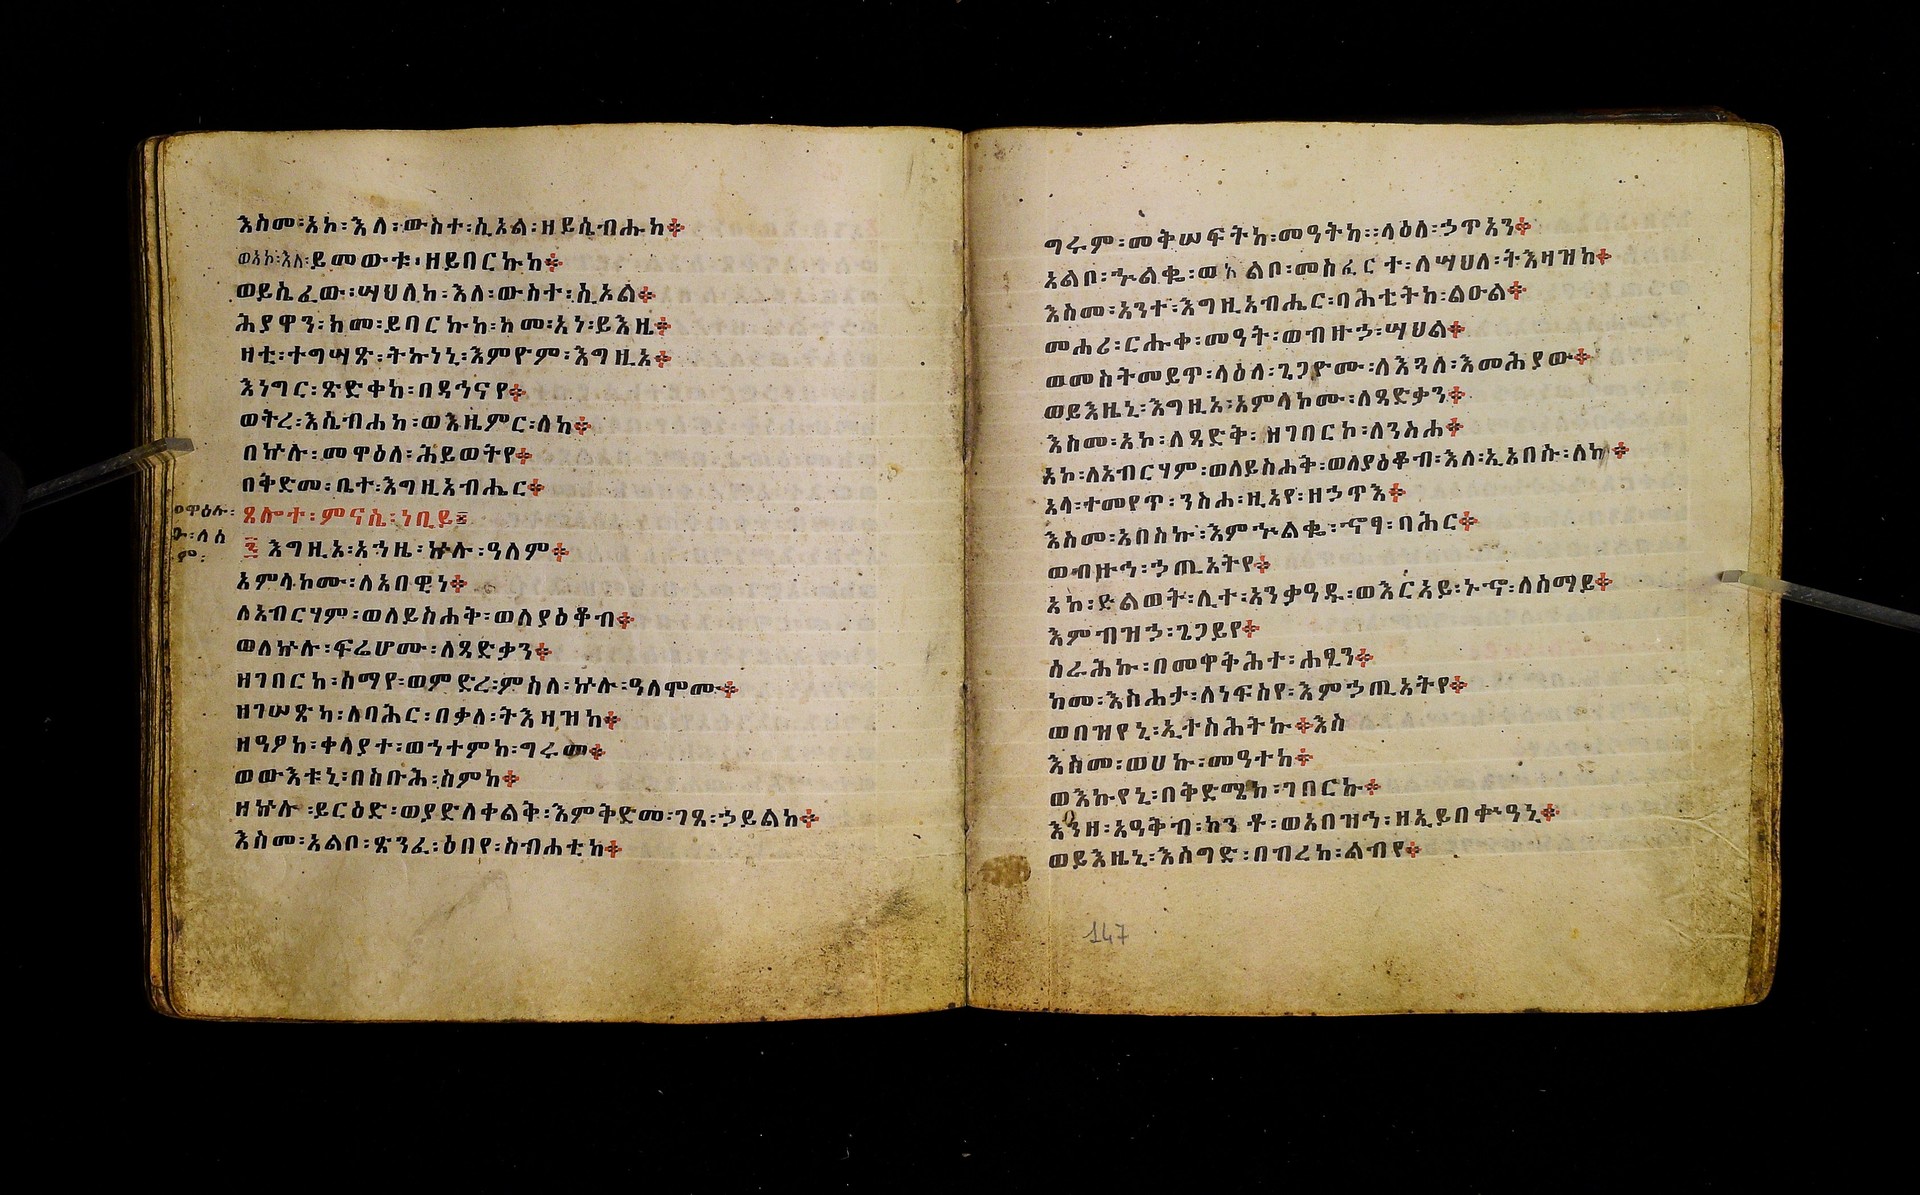 እስመ፡አኮ፡እለ፡ውስተ፡ሲኦል፡ዘይሴብሑከ፨
ወአኮ፡እለ፡ይመውቱ፡ዘይባርኩከ፨
ወይሴፈው፡ሣህለከ፡እለ፡ውስተ፡ሲኦል፨
ሕያዋን፡ከመ፡ይባርኩከ፡ከመ፡አነ፡ይእዜ፨
ዘቲ፡ተግሣጽ፡ትኩነኒ፡እምዮም፡እግዚአ፨
እነግር፡ጽድቀከ፡በዳኅናየ፨
ወትረ፡እሴብሐከ፡ወእዜምር፡ለከ፨
በኵሉ፡መዋዕለ፡ሕይወትየ፨
በቅድመ፡ቤተ፡እግዚአብሔር፨
ጸሎተ፡ምናሴ፡ነቢይ፤
፯ እግዚአ፡አኀዜ፡ኵሉ፡ዓለም፨
አምላኮሙ፡ለአበዊነ፨
ለአብርሃም፡ወለይስሐቅ፡ወለያዕቆብ፨
ወለኵሉ፡ፍሬሆሙ፡ለጻድቃን፨
ዘገበርከ፡ሰማየ፡ወምድረ፡ምስለ፡ኵሉ፡ዓለሞሙ፨
ዘገሠጽካ፡ለባሕር፡በቃለ፡ትእዛዝከ፨
ዘዓፆከ፡ቀላያተ፡ወኀተምከ፡ግሩመ፨
ወውእቱኒ፡በስቡሕ፡ስምከ፨
ዘኵሉ፡ይርዕድ፡ወያድለቀልቅ፡እምቅድመ፡ገጸ፡ኃይልከ፨
እስመ፡አልቦ፡ጽንፈ፡ዕበየ፡ስብሐቲከ፨
ግሩም፡መቅሠፍትከ፡መዓትከ፡፡ላዕለ፡ኃጥአን፨
አልቦ፡ኍልቈ፡ወአልቦ፡መስፈርተ፡ለሣህለ፡ትእዛዝከ፨
እስመ፡አንተ፡እግዚአብሔር፡ባሕቲትከ፡ልዑል፨
መሐሪ፡ርሑቀ፡መዓት፡ወብዙኃ፡ሣህል፨
ወመስትመይጥ፡ላዕለ፡ጌጋዮሙ፡ለእጓለ፡እመሕያው፨
ወይእዜኒ፡እግዚአ፡አምላኮሙ፡ለጻድቃን፨
እስመ፡አኮ፡ለጻድቅ፡ዘገበርኮ፡ለንስሐ፨
አኮ፡ለአብርሃም፡ወለይስሐቅ፡ወለያዕቆብ፡እለ፡ኢአበሱ፡ለከ፨
አላ፡ተመየጥ፡ንስሐ፡ዚአየ፡ዘኃጥእ፨
እስመ፡አበስኩ፡እምኍልቈ፡ኆፃ፡ባሕር፨
ወብዙኅ፡ኃጢአትየ፨
አኮ፡ድልወት፡ሊተ፡አንቃዓዱ፡ወእርአይ፡ኑኆ፡ለሰማይ፨
እምብዝኃ፡ጌጋይየ፨
ሰራሕኩ፡በመዋቅሕተ፡ሐፂን፨
ከመ፡እስሐታ፡ለነፍስየ፡እምኃጢአትየ፨
ወበዝየኒ፡ኢትስሕትኩ፨እስ
እስመ፡ወሀኩ፡መዓተከ፨
ወእኩየኒ፡በቅድሜከ፡ገበርኩ፨
እንዘ፡አዓቅብ፡ከንቶ፡ወአበዝኅ፡ዘኢይበቍዓኒ፨
ወይእዜኒ፡እሰግድ፡በብረከ፡ልብየ፨
147